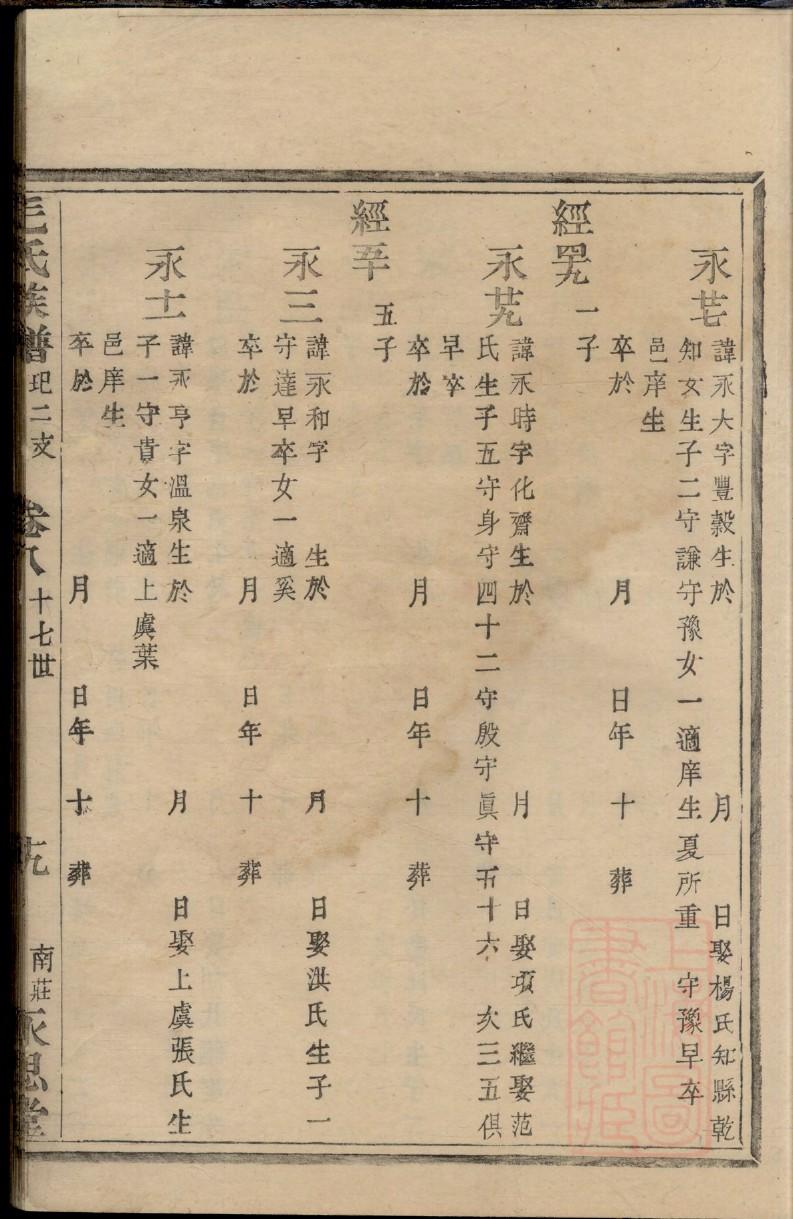 永茳
諱永大字豐穀生於 月 日娶楊氏知縣乾
知女生子二守謙守豫女一適庠生夏所重 守豫早卒
邑庠生
卒於 月 日年 十 葬
經罤 一子
永艽
諱永時字化齋生於 月 日娶項氏繼娶范
氏生子五守身守四十二守殷守眞守五十六 次三五俱
早卒
卒於 月 日年 十 葬
經 五子
永三
諱永和字 生於 月 日娶洪氏生子一
守達早卒女一適奚
卒於 月 日年 十 葬
永十一
諱永亨字溫泉生於 月 日娶上虞張氏生
子一守貴女一適上虞葉
邑庠生
卒於 月 日年 十 葬
毛氏族譜 玘二支 卷八 十七世 九 南莊永思堂
上海圖書館藏